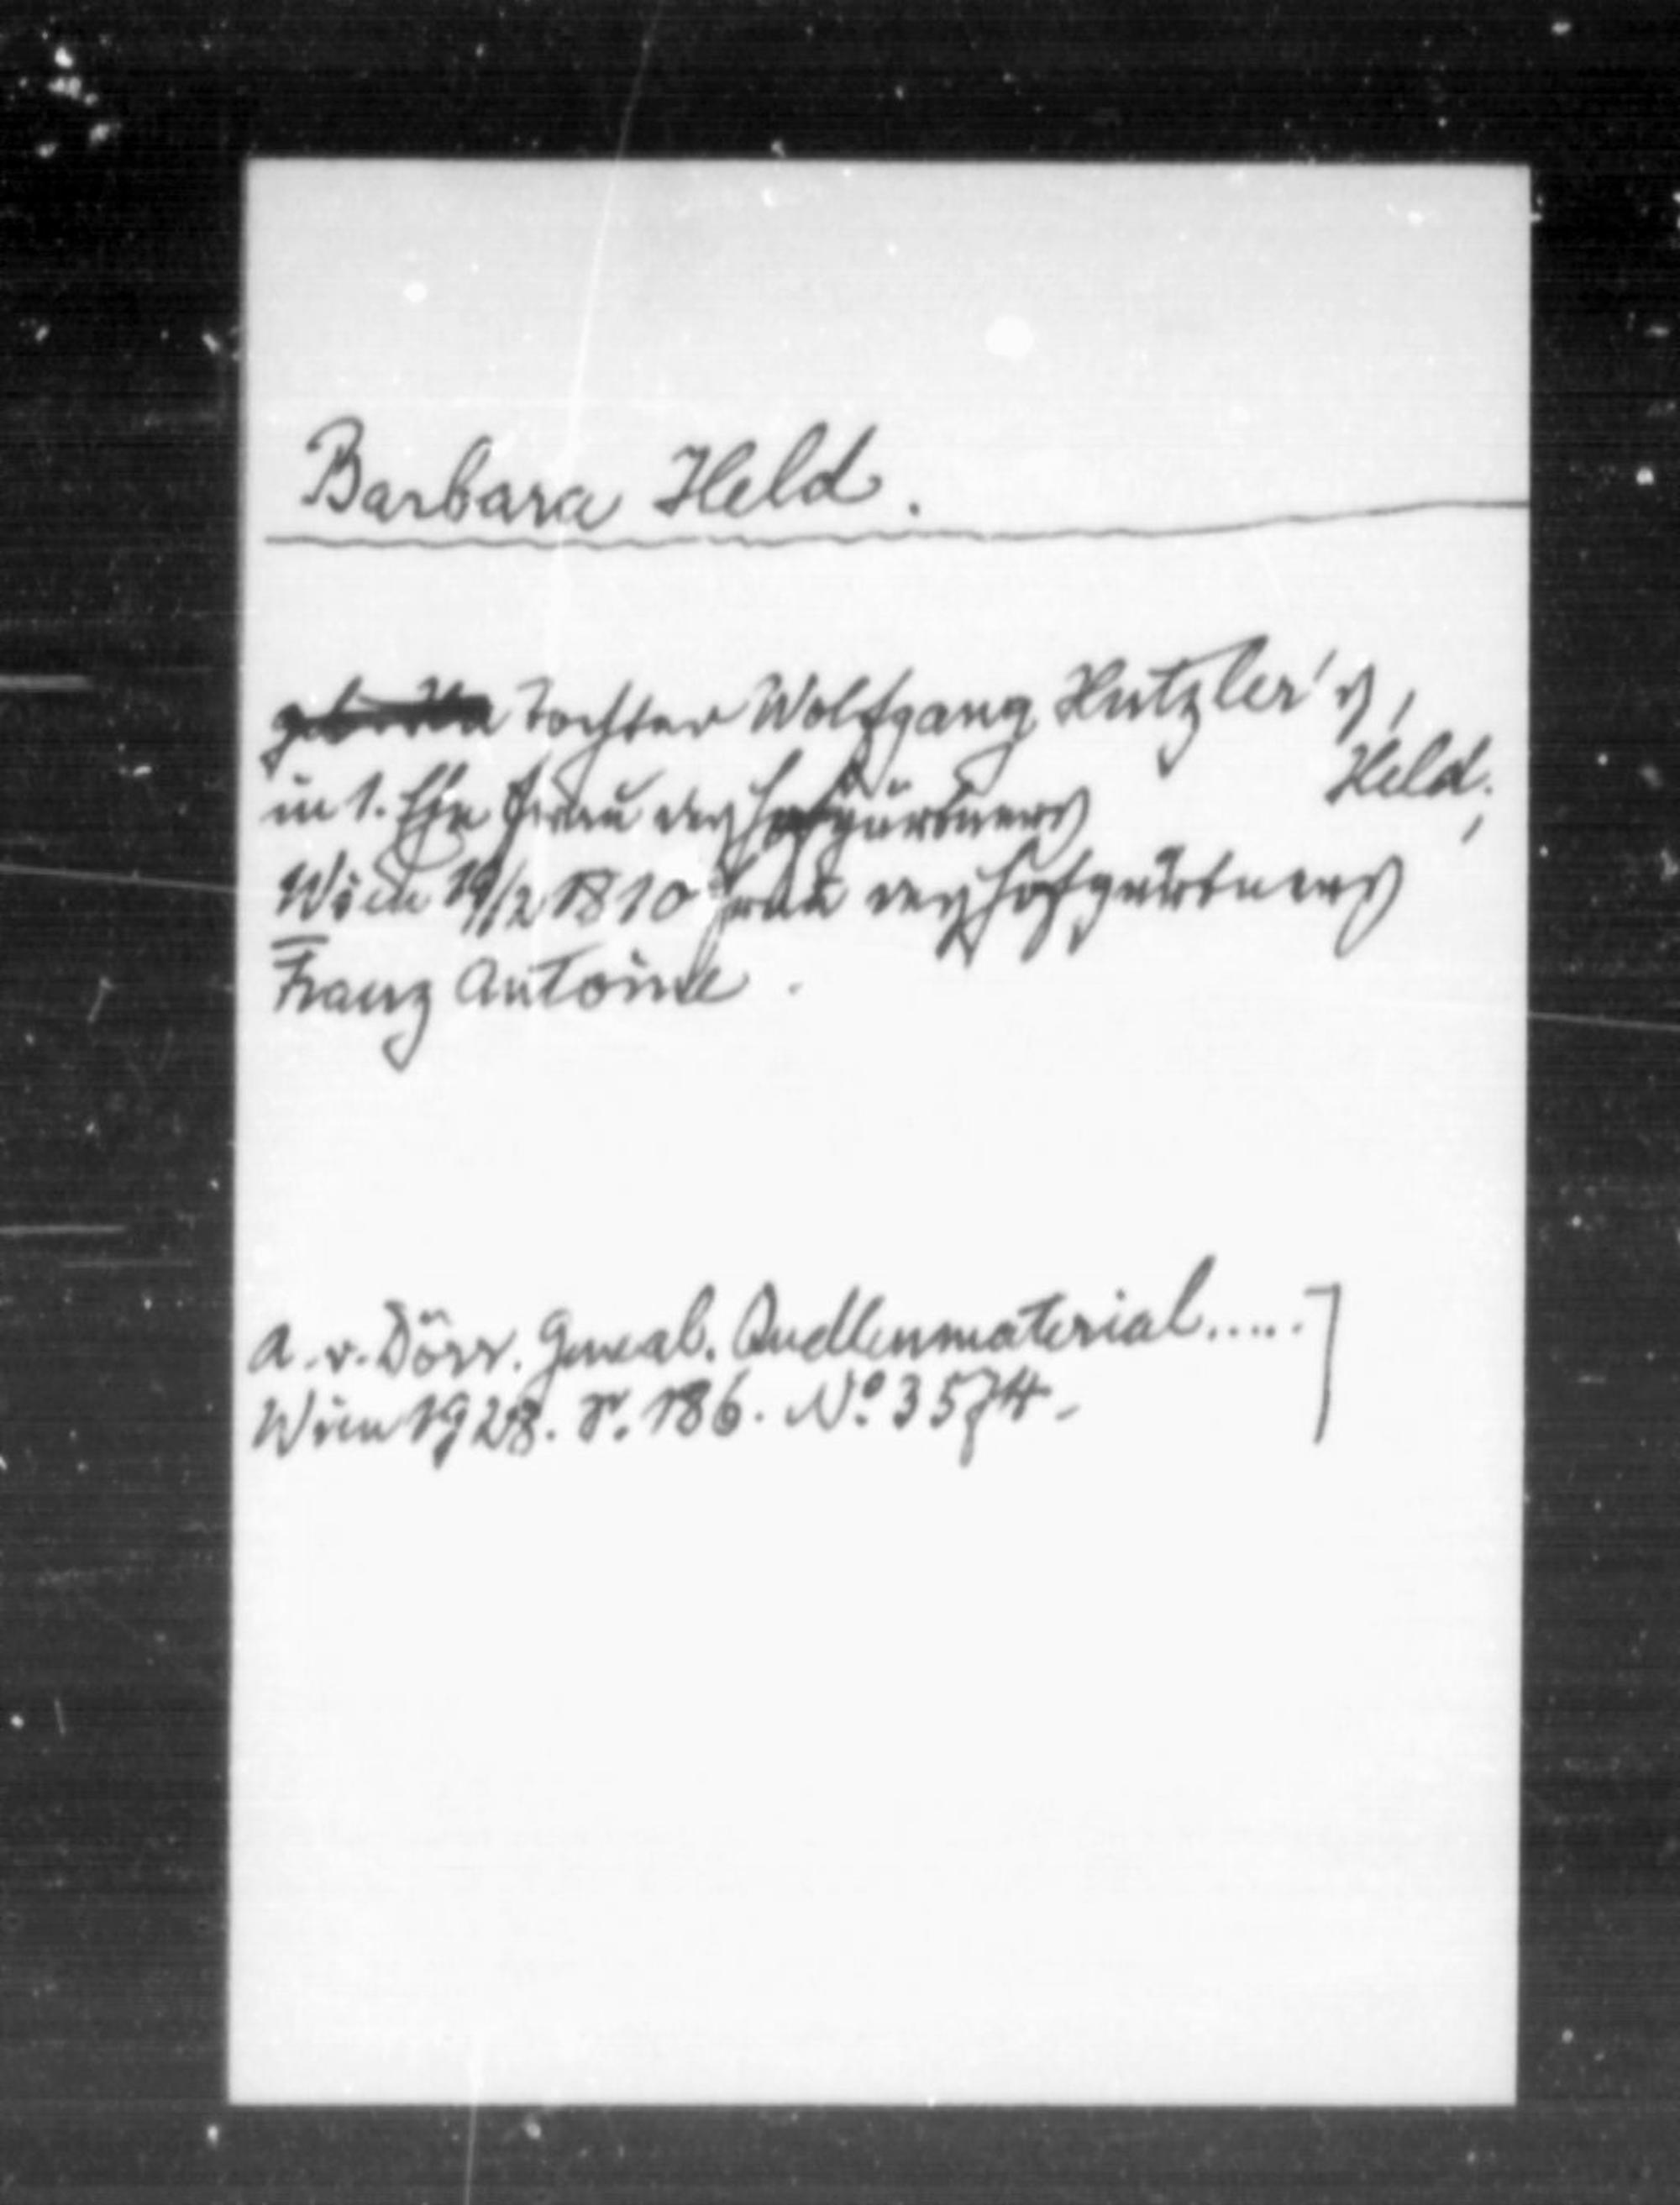 Barbara Held.
Tochter Wolfgang Hutzler's,
in 1. Ehe Frau des Hofgärtners Held;
Wien 19/2 1810 Frau des Hofgärtners
Franz Antoine.
A. v. Dörr. Geneal. Quellenmaterial.....
Wien 1928. S. 186. No. 3574.